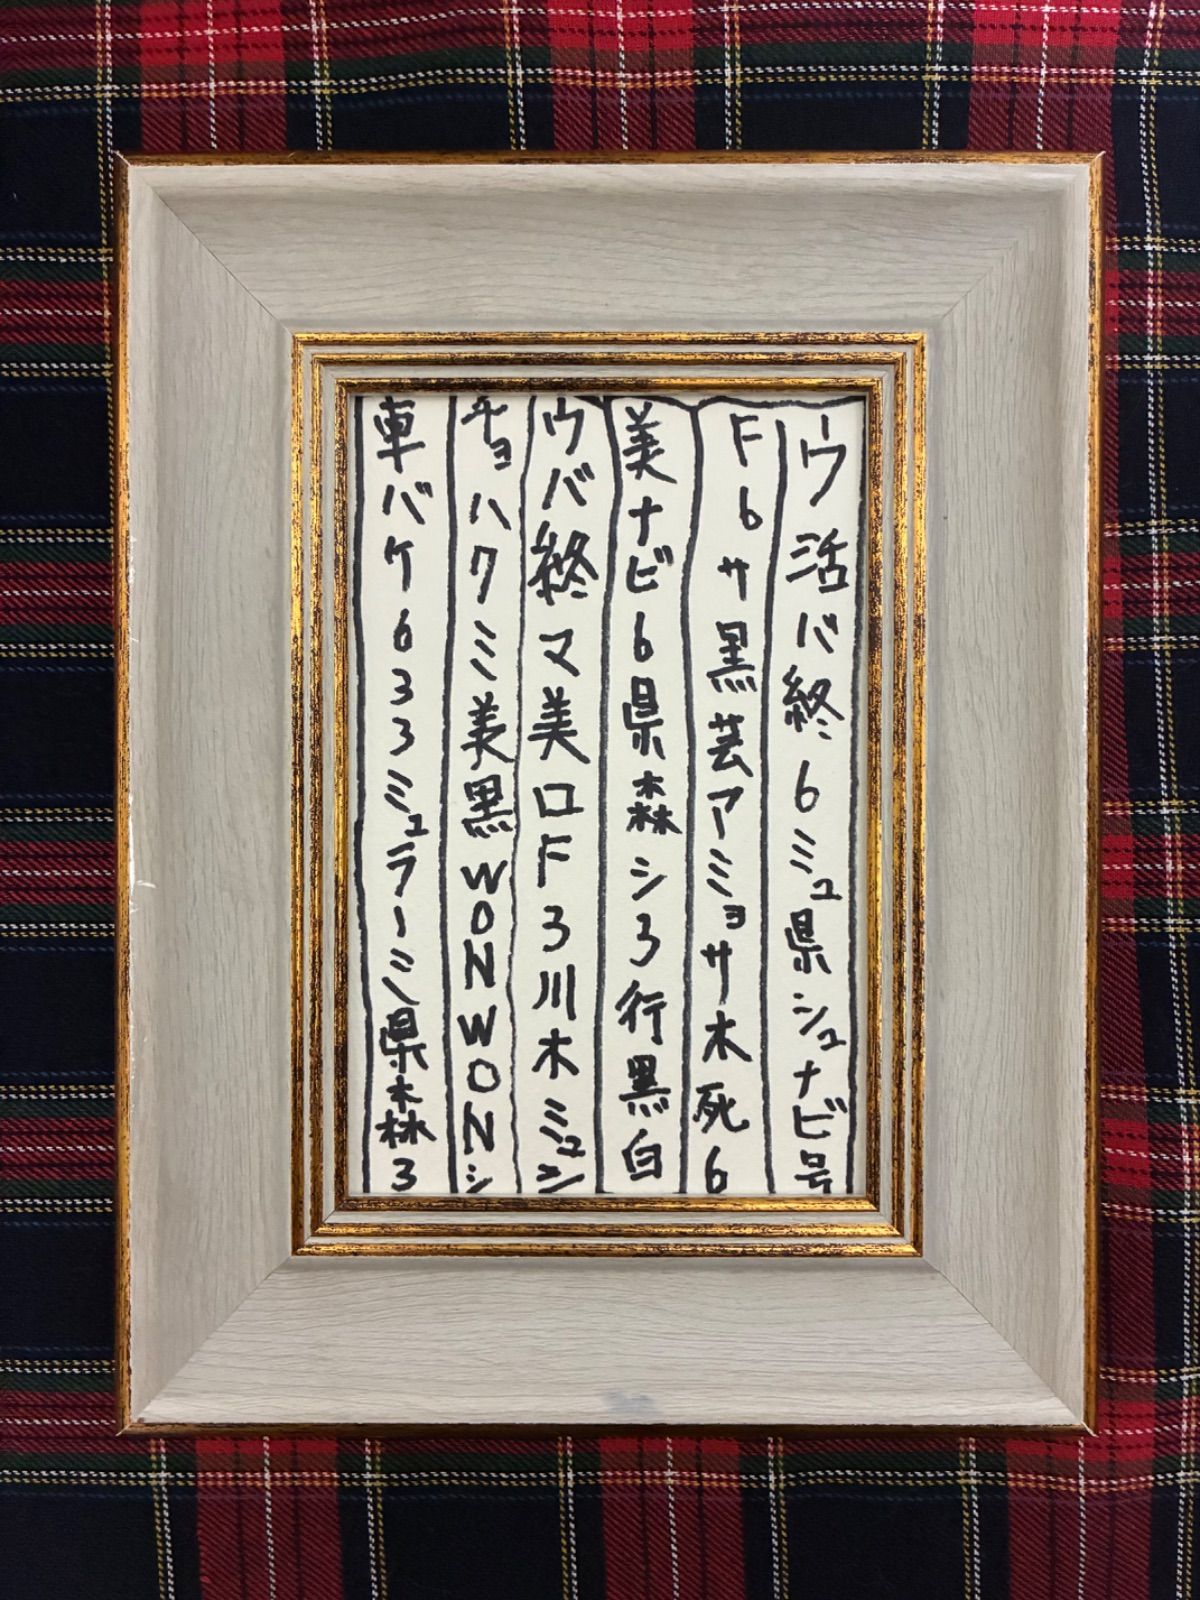 ウ活バ終6ミュ県シュナビ号
F6サ黒芸アミョサ木死6
美ナビ6県森シ3行黒白
ウバ終マ美ロF3川木ミュシ
チョハクミ美黒WONWONシ
車バケ633ミュラーミ県森3